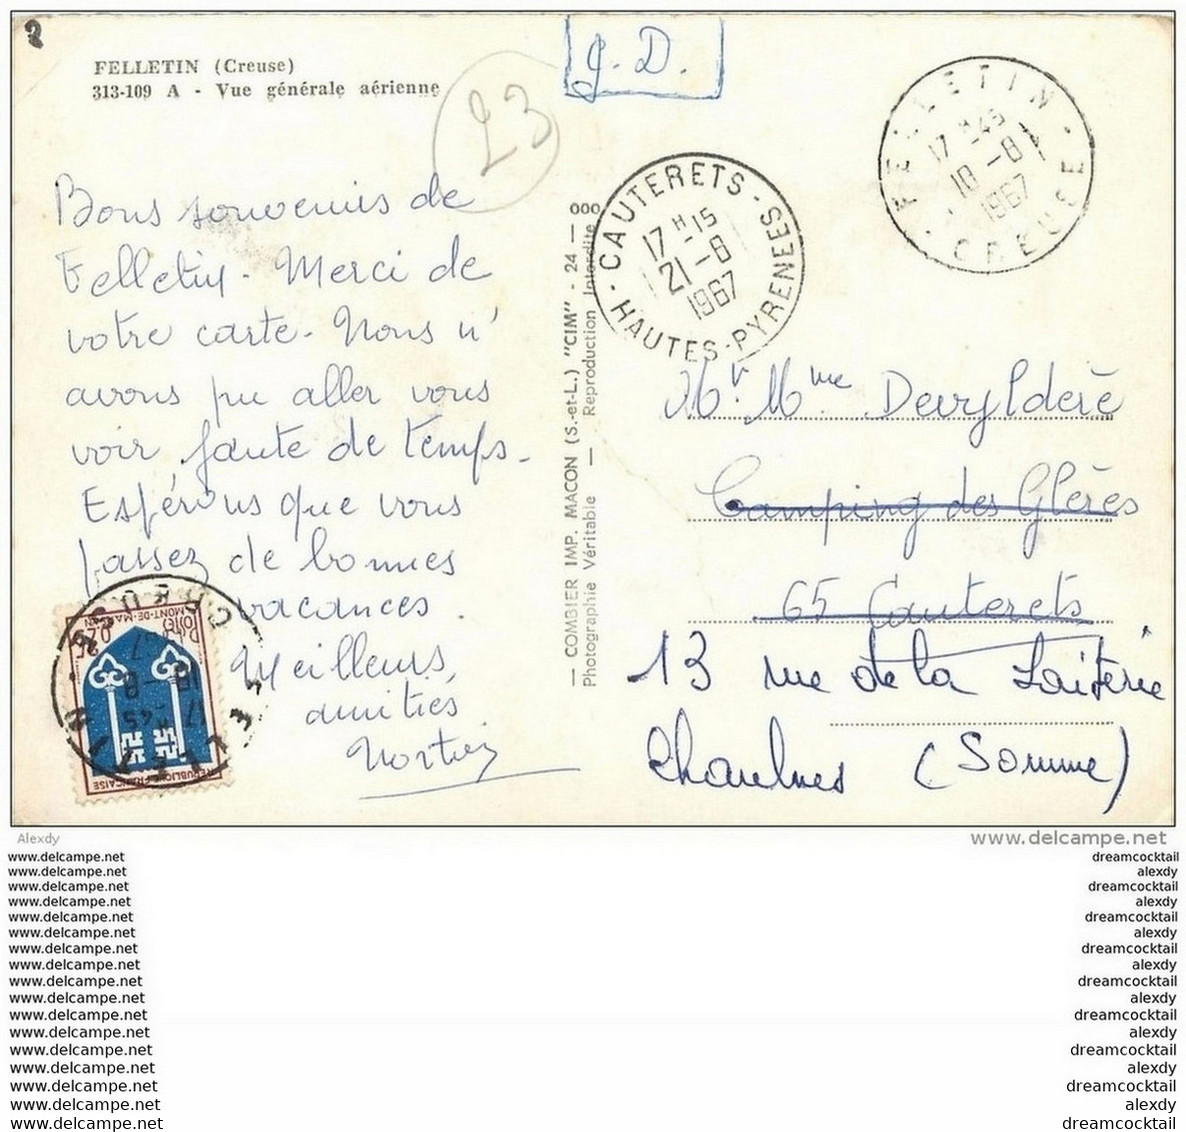 FELLETIN (Creuse)
313-109 A - Vue générale aérienne
23
g. D.
FELLETIN
17 H -45
18 -8
1967
CREUSE
CAUTERETS - HAUTES-PYRENEES
17 H -15
21 -8
1967
Bons souvenirs de
Felletin. Merci de
votre carte. Nous n'
avons pu aller vous
voir faute de temps.
Espérons que vous
passez de bonnes
vacances.
Meilleurs
amitiés
000
— COMBIER IMP. MACON (S.-et-L.) "CIM" - 24 —
Photographie Véritable — Reproduction Interdite
Mr Mme Devyldère
Camping des Glères
65 Cauterets
13 rue de la Laiterie
Chaulnes (Somme)
MONT-DE-MARSAN
0,25
Postes
RÉPUBLIQUE FRANÇAISE
FELLETIN
17 H -45
18 -8
CREUSE
Alexdy
www.delcampe.net
www.delcampe.net dreamcocktail
www.delcampe.net alexdy
www.delcampe.net dreamcocktail
www.delcampe.net alexdy
www.delcampe.net dreamcocktail
www.delcampe.net alexdy
www.delcampe.net dreamcocktail
www.delcampe.net alexdy
www.delcampe.net dreamcocktail
www.delcampe.net alexdy
www.delcampe.net dreamcocktail
www.delcampe.net alexdy
www.delcampe.net dreamcocktail
www.delcampe.net alexdy
www.delcampe.net dreamcocktail
www.delcampe.net alexdy
www.delcampe.net dreamcocktail